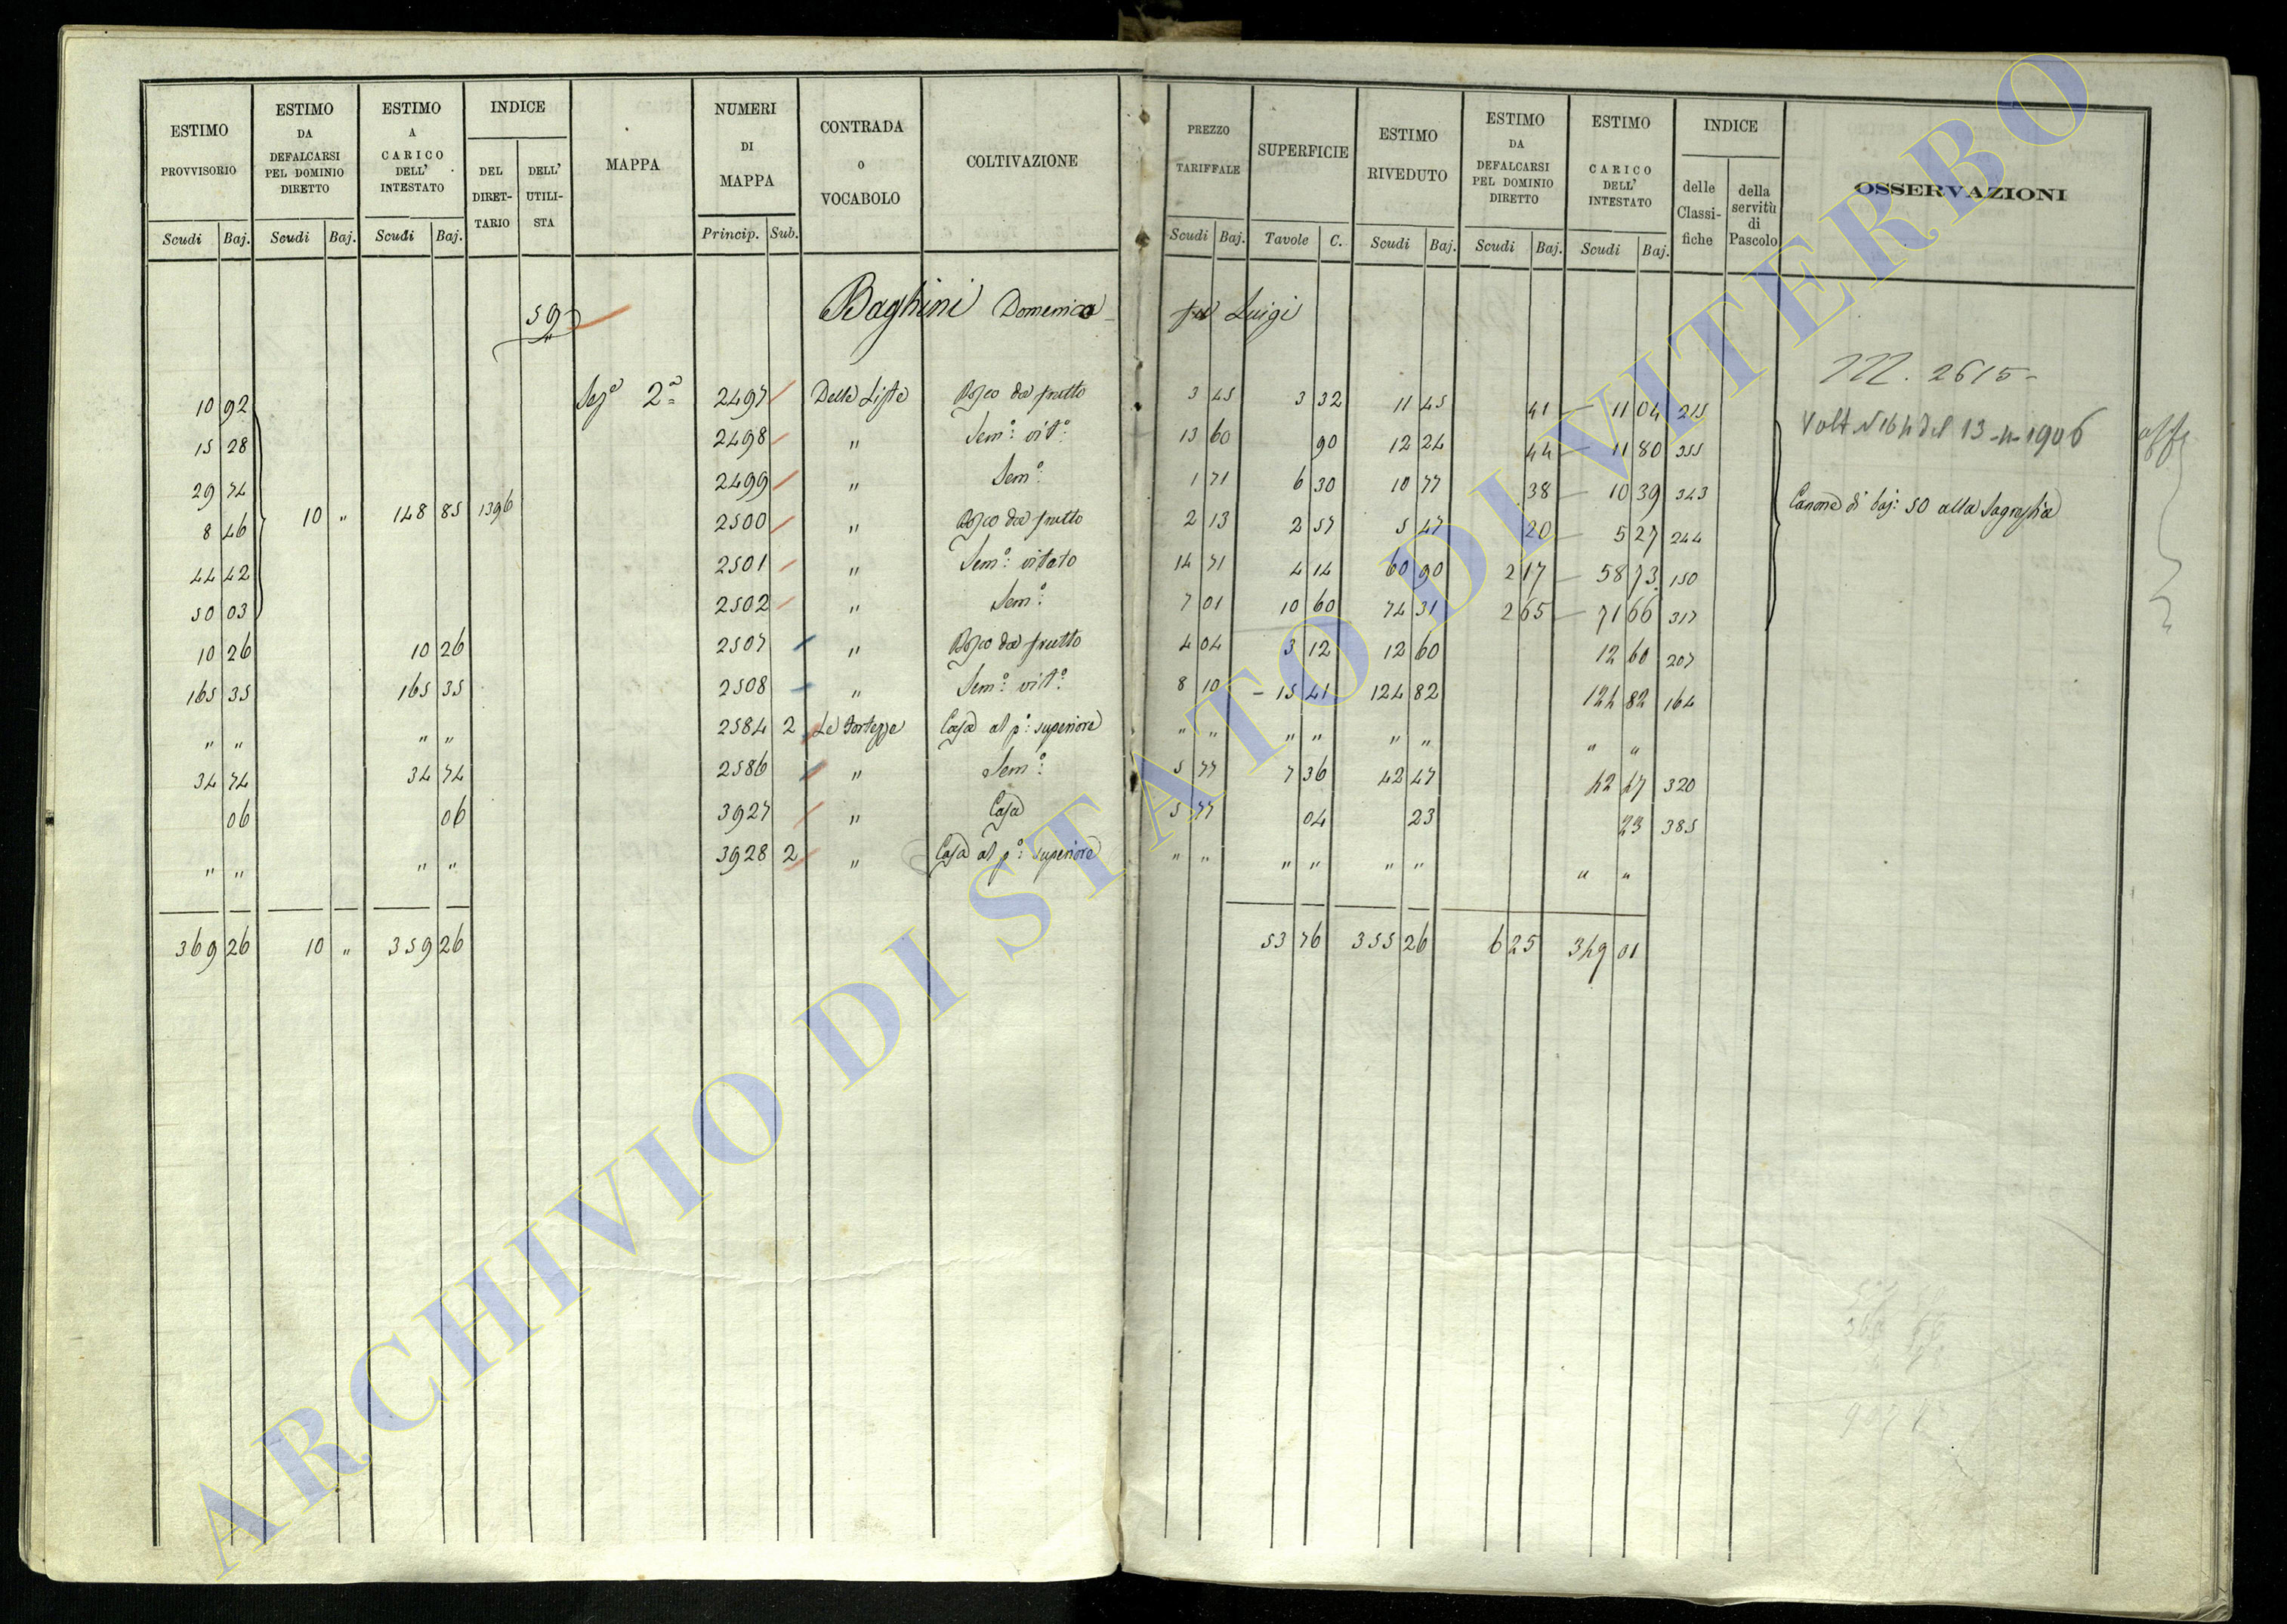 ESTIMO PROVVISORIO | ESTIMO DA DEFALCARSI PEL DOMINIO DIRETTO | ESTIMO A CARICO DELL' INTESTATO | INDICE | MAPPA | NUMERI DI MAPPA | CONTRADA o VOCABOLO | COLTIVAZIONE | PREZZO TARIFFALE | SUPERFICIE | ESTIMO RIVEDUTO | ESTIMO DA DEFALCARSI PEL DOMINIO DIRETTO | ESTIMO CARICO DELL' INTESTATO | INDICE | OSSERVAZIONI
DEL DIRETTARIO | DELL' UTILISTA | delle Classifiche | della servitù di Pascolo
Scudi | Baj. | Scudi | Baj. | Scudi | Baj. | Princip. | Sub. | Scudi | Baj. | Tavole | C. | Scudi | Baj. | Scudi | Baj. | Scudi | Baj.
59 Baghini Domenico fu Luigi
M. 2615
10 92 | Sez.e 2a | 2497 | Delle Liste | Bosco da frutto | 3 45 | 3 32 | 11 45 | 41 | 11 04 | 215
Volt N 164 del 13-4-1906
15 28 | 2498 | " | Sem.o vit.o | 13 60 | 90 | 12 24 | 44 | 11 80 | 355
29 74 | 2499 | " | Sem.o | 1 71 | 6 30 | 10 77 | 38 | 10 39 | 343
Canone di baj: 50 alla Sagrestia
8 46 | 10 " | 148 85 | 1396 | 2500 | " | Bosco da frutto | 2 13 | 2 57 | 5 47 | 20 | 5 27 | 244
44 42 | 2501 | " | Sem.o vitato | 14 71 | 4 14 | 60 90 | 2 17 | 58 73 | 150
50 03 | 2502 | " | Sem.o | 7 01 | 10 60 | 74 31 | 2 65 | 71 66 | 317
10 26 | 10 26 | 2507 | " | Bosco da frutto | 4 04 | 3 12 | 12 60 | 12 60 | 207
165 35 | 165 35 | 2508 | " | Sem.o vit.o | 8 10 | 15 41 | 124 82 | 124 82 | 164
" " | " " | 2584 | 2 | Le Fortezze | Casa al p.o superiore | " " | " " | " " | " "
34 74 | 34 74 | 2586 | " | Sem.o | 5 77 | 7 36 | 42 47 | 42 47 | 320
06 | 06 | 3927 | " | Casa | 5 77 | 04 | 23 | 23 | 385
" " | " " | 3928 | 2 | " | Casa al p.o superiore | " " | " " | " " | " "
369 26 | 10 " | 359 26 | 53 76 | 355 26 | 6 25 | 349 01
ARCHIVIO DI STATO DI VITERBO